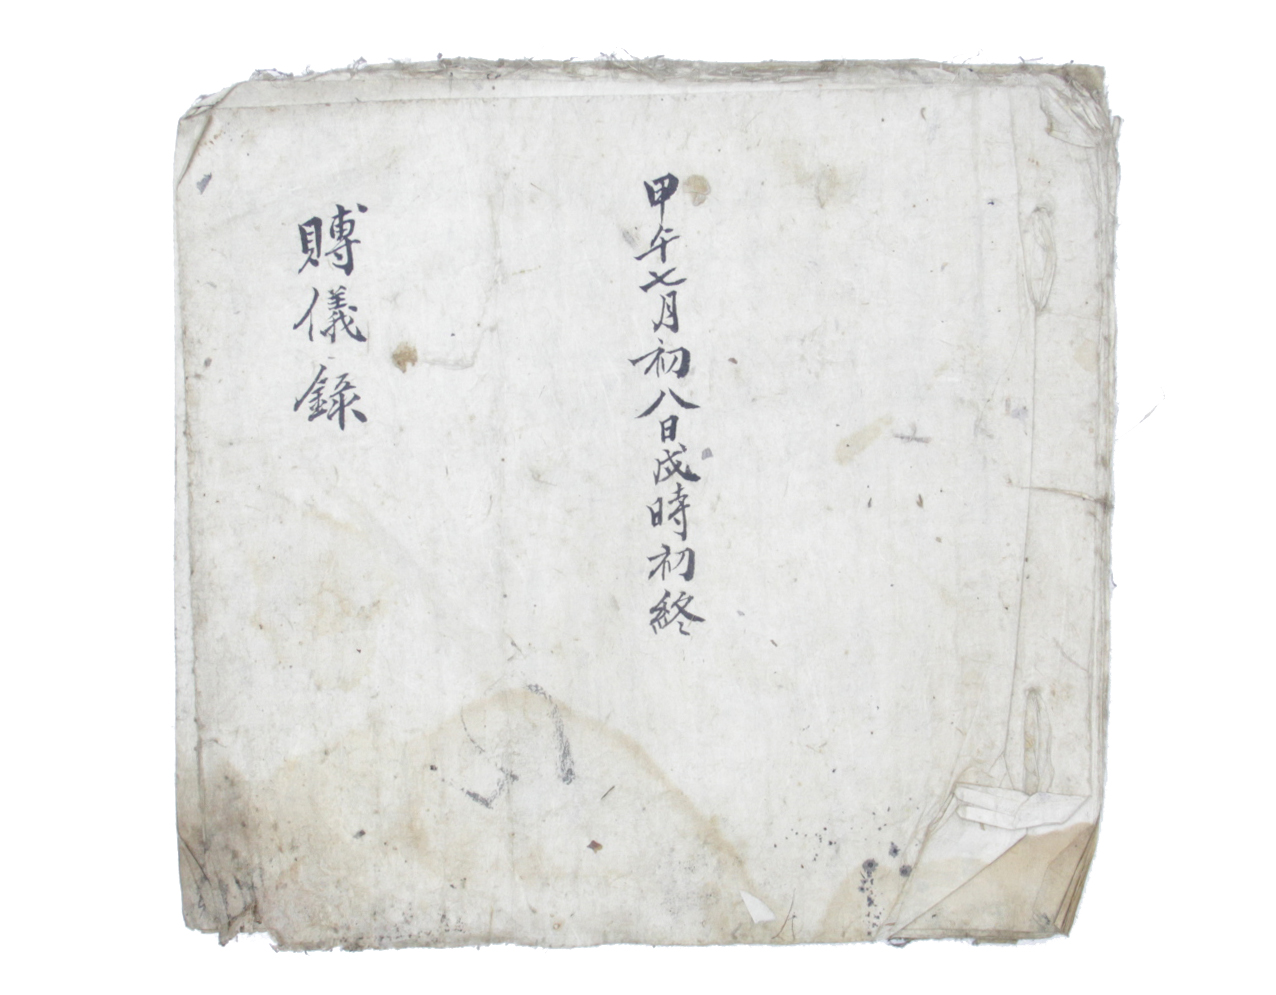 甲午七月初八日戌時初終
賻儀錄